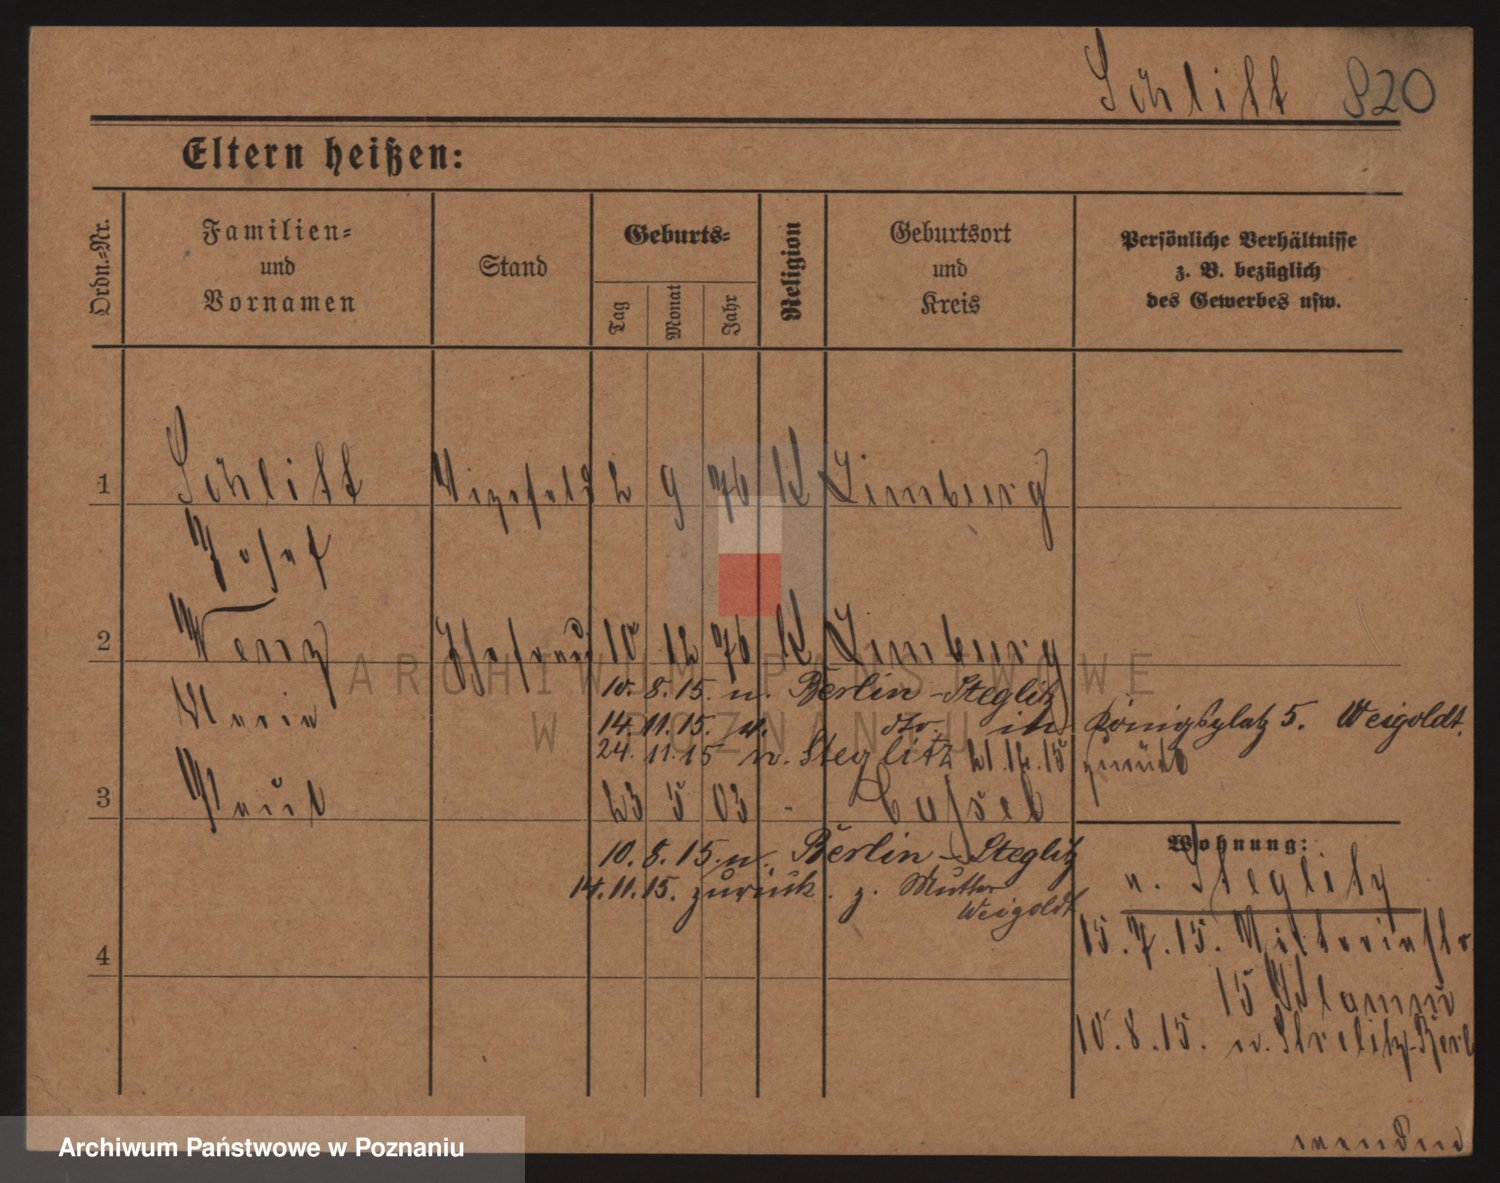 Schlitt 820
Eltern heißen:
Ordn.-Nr.
Familien-
und
Vornamen
Stand
Geburts-
Tag
Monat
Jahr
Religion
Geburtsort
und
Kreis
Persönliche Verhältnisse
z. B. bezüglich
des Gewerbes usw.
1 Schlitt Vizefeld 2 9 76 K Limburg
Josef
2 Wenz Ehefrau 10 12 76 K Limburg
10. 8. 15. n. Berlin-Steglitz
Maria
14. 11. 15. v. dto. in Königsplatz 5. Weigoldt.
24. 11. 15 n. Steglitz 21. 12. 15 zurück
3 Paul 23 5 03 - Cassel
Wohnung:
10. 8. 15. n. Berlin-Steglitz
n. Steglitz
14. 11. 15. zurück. z. Mutter
Weigoldt
15. 7. 15. Viktoriastr
4
15
10. 8. 15. n. Strelitz-Berl
wenden
ARCHIWUM PAŃSTWOWE
W POZNANIU
Archiwum Państwowe w Poznaniu